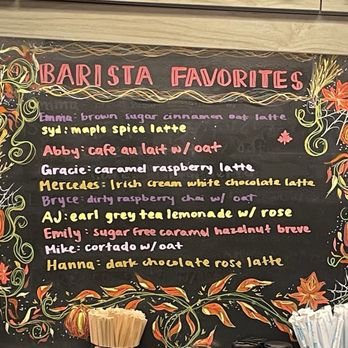 BARISTA FAVORITES
Emma: brown sugar cinnamon oat latte
Syd: maple spice latte
Abby: cafe au lait w/ oat
Gracie: caramel raspberry latte
Mercedes: Irish cream white chocolate latte
Bryce: dirty raspberry chai w/ oat
AJ: earl grey tea lemonade w/ rose
Emily: sugar free caramel hazelnut breve
Mike: cortado w/ oat
Hanna: dark chocolate rose latte